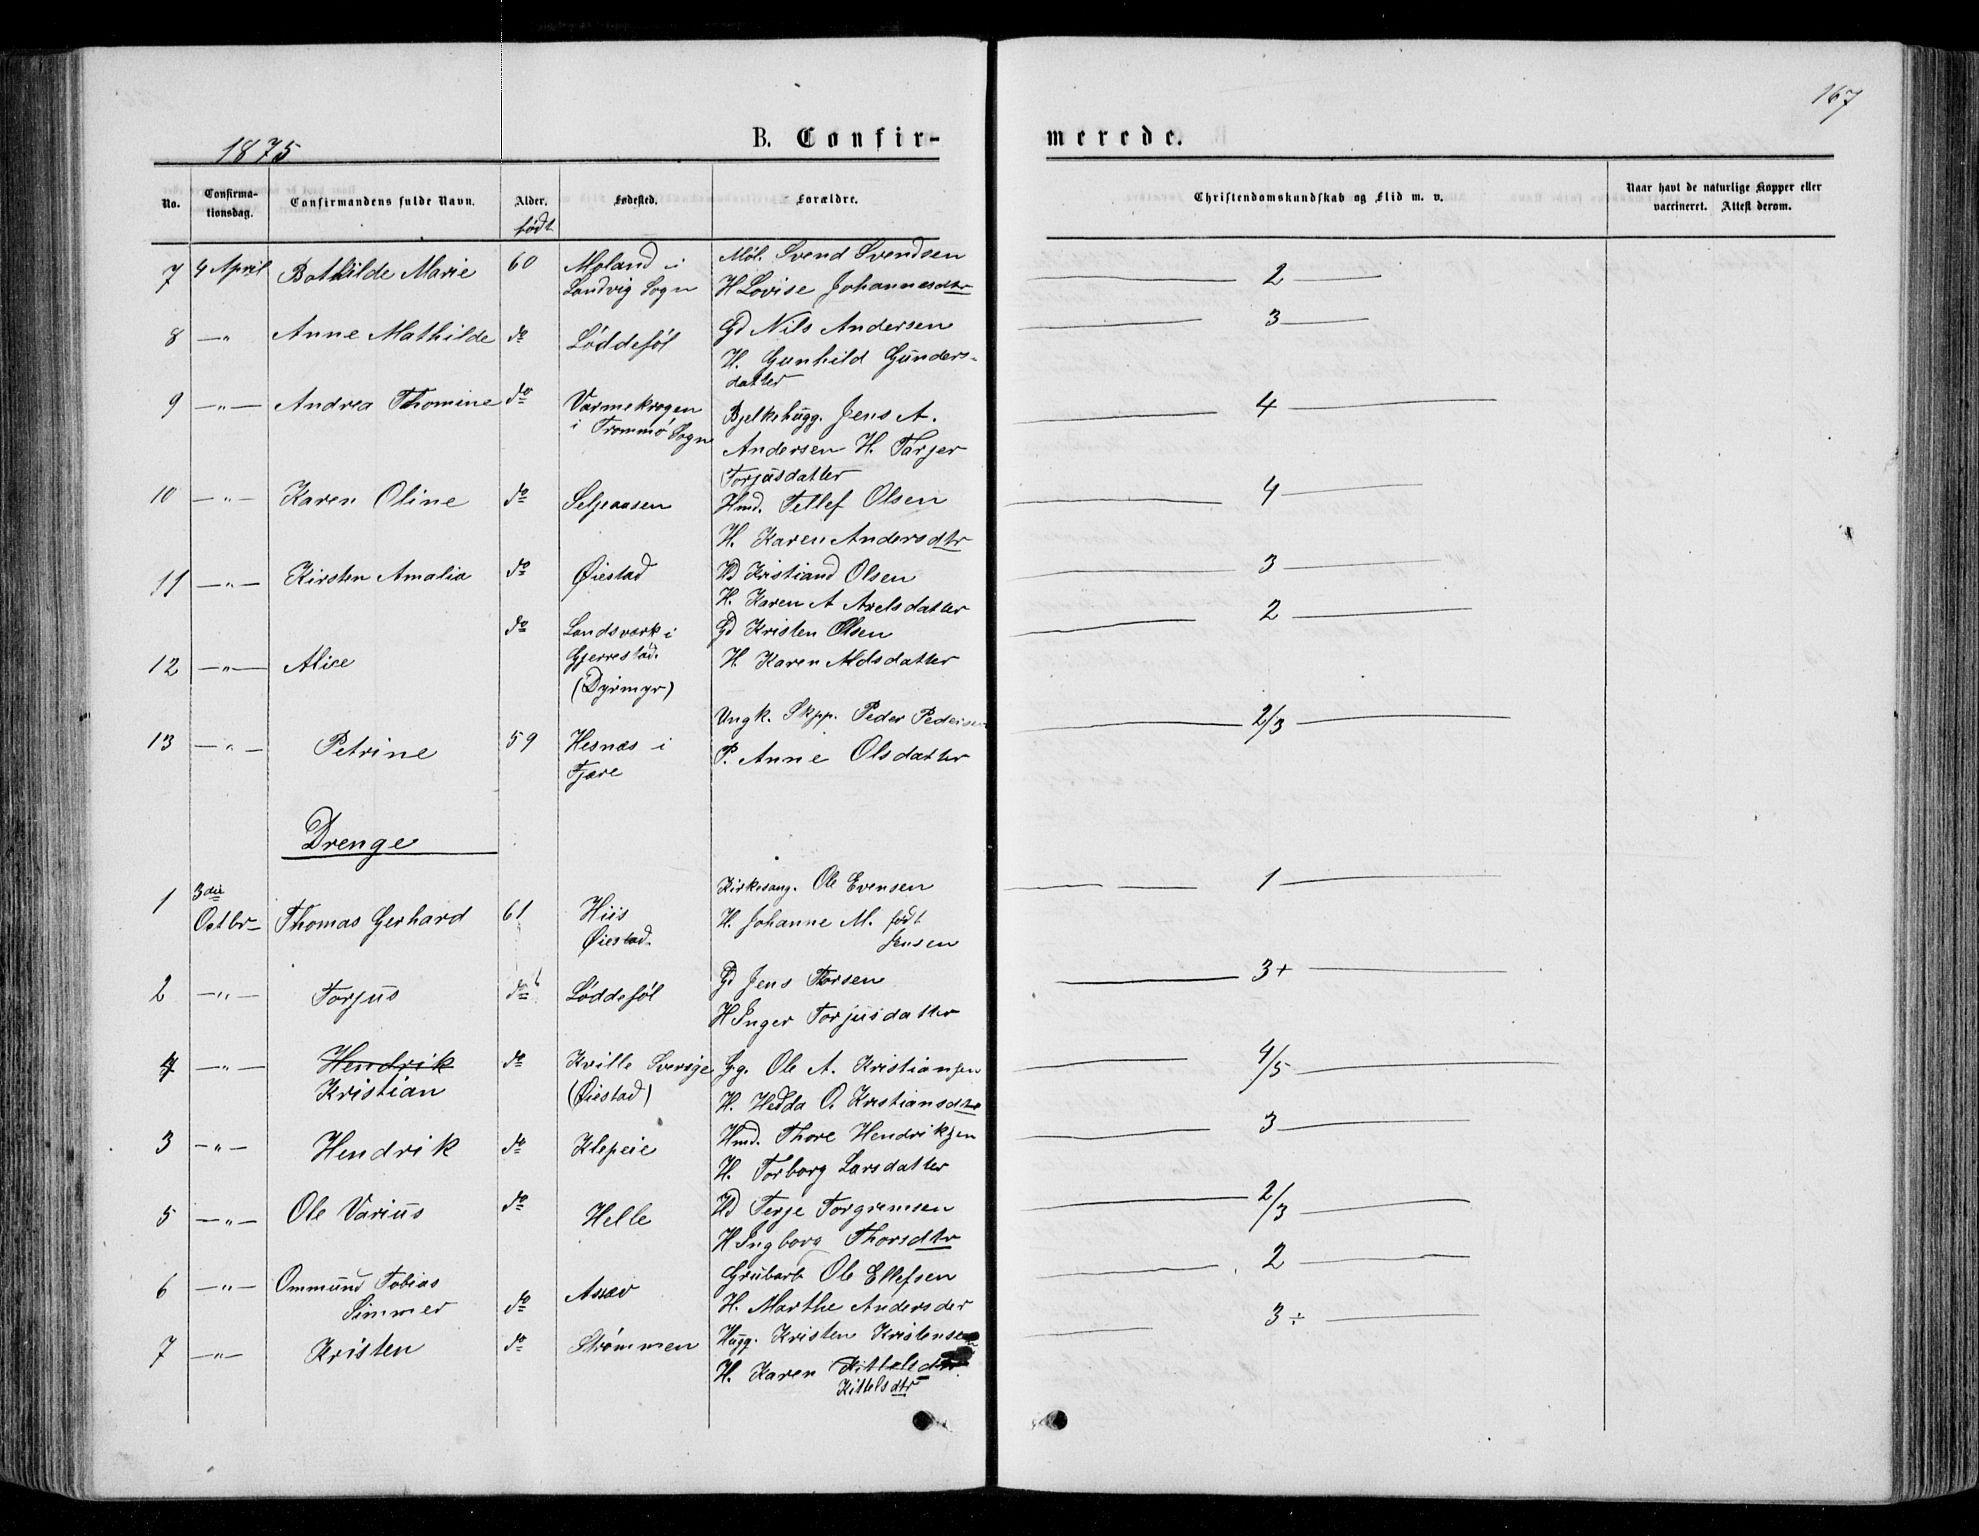 167
1875
B. Confirmerede.
No. Confirmationsdag. Confirmandens fulde Navn. Alder. født Fødested. Forældre. Christendomskundskab og Flid m. v. Naar havt de naturlige Kopper eller vaccineret. Attest derom.
7 4 April Bathilde Marie 60 Moland i Møl. Svend Svendsen
Landvig Sogn H Lovise Johannesdtr 2
8 — " Anne Mathilde do Løddesøl Gd Nils Andersen 3
H. Gunhild Gunders-
datter
9 — " — Andrea Thomine do Varmekrogen Bjelkehugg. Jens A. 4
i Trommø Sogn Andersen H. Tarjer
Torjusdatter
10 — " — Karen Oline do Seljeaasen Hmd. Tellef Olsen 4
H. Karen Andersdtr
11 — " — Kirsten Amalia do Øiestad Hd Kristiand Olsen 3
H. Karen A Axelsdatter
do Landsværk i Gd Kristen Olsen 2
12 — " — Alice Gjerrestad. H. Karen Aldsdatter
(Dyrmyr)
Ungk. Skpp. Peder Pedersen 2/3
13 — " — Petrine 59 Hesnæs i P. Anne Olsdatter
Fjære
Drenge
1 3die Kirkesang. Ole Evensen 1
Octbr Thomas Gerhard 61 Hiis H. Johanne M. født
Øiestad. Jensen
2 — " — Torjus do Løddesøl Gd Jens Torsen 3+
H Inger Torjusdatter
4 — " — Hendrik do Kville Sverige Gg. Ole A. Kristiansen 4/5
Kristian (Øiestad) H. Hedda O. Kristiansdtr
3 — " — Hendrik do Klepeie Hmd. Thore Hendriksen 3
H. Torborg Larsdatter
5 — " — Ole Varius do Helle Hd Terje Torgrimsen 2/3
H Ingborg Thorsdtr
6 — " — Ommund Tobias Asæv Grubarb Ole Ellefsen 2
Simmer do H. Marthe Andersder
7 — " — Kristen do Strømmen Hugg. Kristen Kristensen 3÷
H. Karen Kittelsdtr
Kittelsdtr